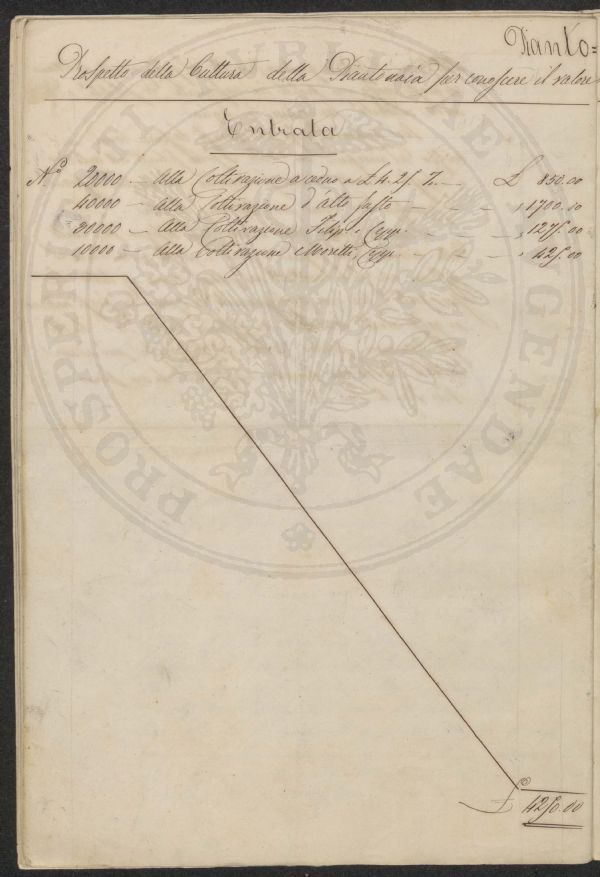 Pianto=
Prospetto della Cultura della Piantonaia per conoscere il valore
Entrata
N.° 20000 — alla Coltivazione a ceduo a £ 4.25. — £ 850.00
40000 — alla Coltivazione d'alto fusto — — — „ 1700.00
30000 — alla Coltivazione Filip. Ceppi. — — — „ 1275.00
10000 — alla Coltivazione Moretti, Ceppi. — — — „ 425.00
£ 4250.00
PROSPERITATI PUBLICAE AUGENDAE